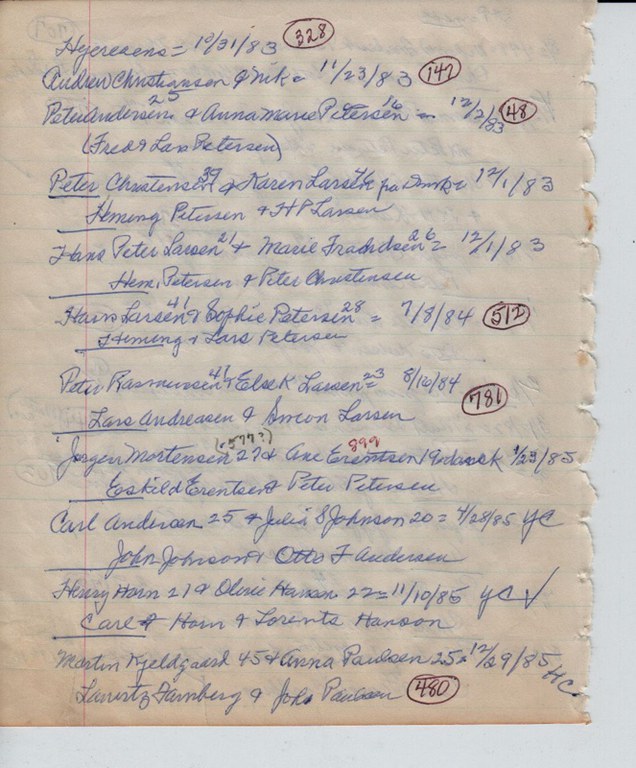 Hyeresens = 10/31/83 328
Andrew Christiansen & Nik = 11/23/83 142
Peter Andersen 25 & Anna Marie Petersen 16 = 12/2/83 48
(Fred & Lars Petersen)
Peter Christensen 37 & Karen Larsen 12/1/83
Heming Petersen & H P Larsen
Hans Peter Larsen 21 & Marie 26 = 12/1/83
Hem. Petersen & Peter Christensen
Hans Larsen 41 & Sophie Petersen 28 = 7/8/84 512
Heming & Lars Petersen
Peter Rasmussen 41 & Else K Larsen 23 = 8/16/84
781
Lars Andreasen & Simon Larsen
(-577?)
Jorgen Mortensen 27 & Ane Erentsen 899 19 1/23/85
Eskild Erentsen & Peter Petersen
Carl Andersen 25 & Julia S Johnson 20 = 4/28/85 YC
John Johnson & Otto F Andersen
Henry Horn 27 & Olivie Hanson 22 = 11/10/85 YC ✓
Carl Horn & Lorents Hanson
Martin Kjeldgaard 45 & Anna Paulsen 25 = 12/29/85 YC
Lauritz Damberg & John Paulsen 480